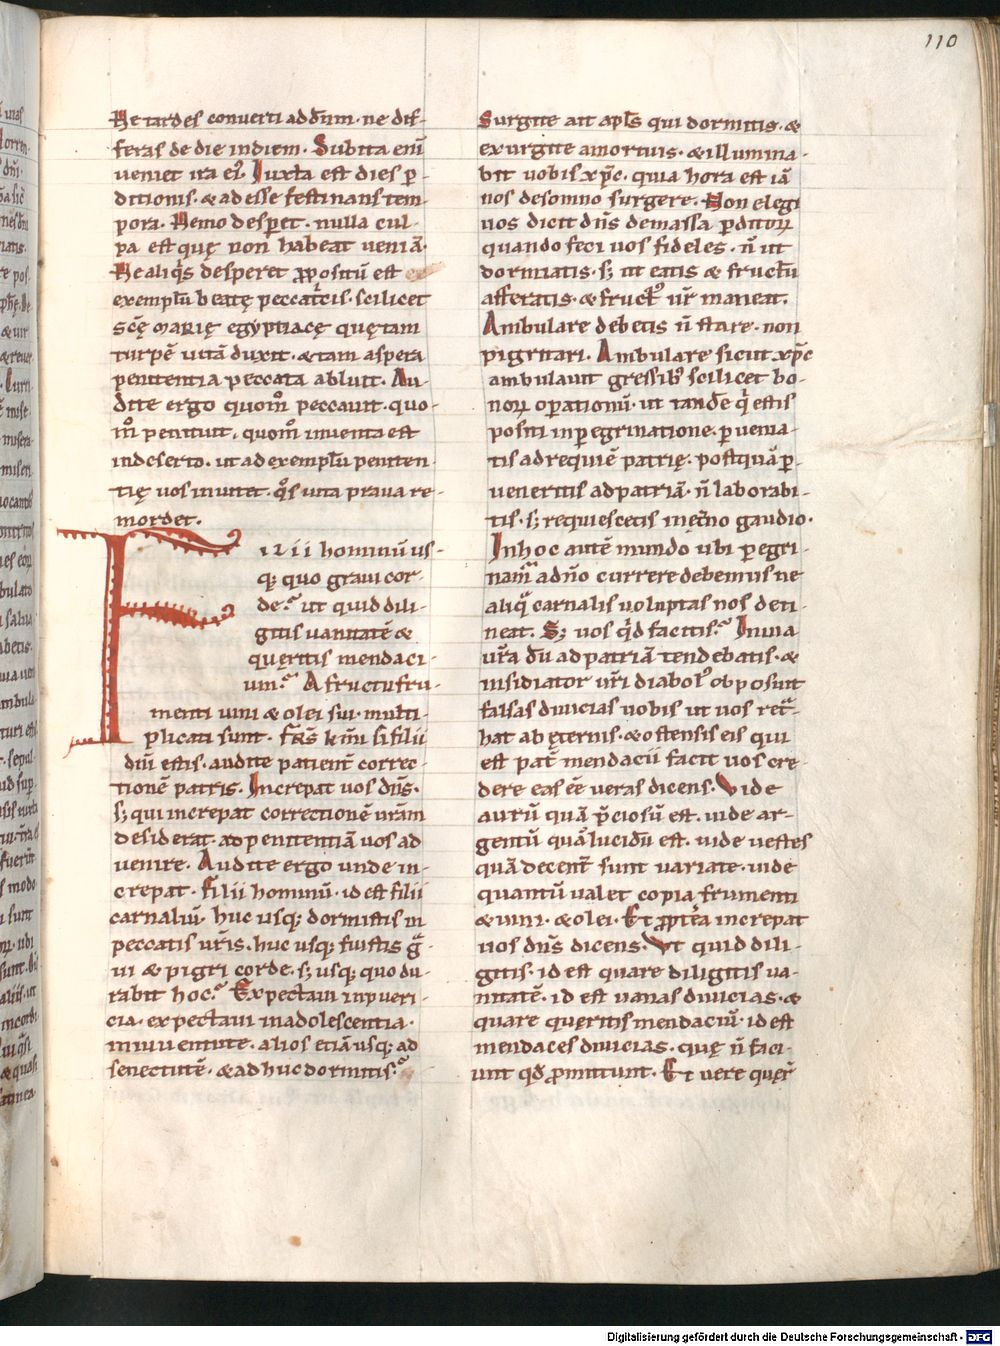 110
Ne tardes converti ad dn̄m · ne dif-
feras de die in diem · Subita eni͂
veniet ira ei9. Iuxta est dies p̲-
ditionis · & adesse festinans tem-
pora · Nemo desperet · nulla cul-
pa est quę non habeat veniā ·
Ne aliq͛s desperet ꝓpositū est
exemplū beatę peccatͥcis · scilicet
scē marię egyptiacę quę tam
turpē vitā duxit · & tam aspera
penitentia peccata abluit · Au-
dite ergo quom̄ peccavit · quo-
m̄ penituit · quom̄ inventa est
in deserto · ut ad exemplū peniten-
tię vos invitet · q͛s vita prava re-
mordet.
Filii hominū us-
q; quo gravi cor-
de? ut quid dili-
gitis vanitatē &
quęritis mendaci-
um? A fructu fru-
menti vini & olei sui · multi-
plicati sunt · frs̄ km̄i si filii
dni͂ estis · audite patient̄ correc-
tionē patris. Increpat vos dn̄s ·
s; qui increpat correctionē vr̄am
desiderat · ad penitentiā vos ad
venire. Audite ergo unde in-
crepat · filii hominū · id est filii
carnaliū · huc usq; dormistis in
peccatis vr̄is · huc usq; fuistis gͣ-
vi & pigri corde · s; usq; quo du-
rabit hoc? Expectavi in pueri-
cia · expectavi in adolescentia ·
in iuventute · alios etiā usq; ad
senectutē · & adhuc dormitis?
Surgite ait apls̄ qui dormitis · &
exurgite a mortuis · & illumina-
bit vobis xp̄c · quia hora est iā
nos de somno surgere. Non elegi
vos dicit dn̄s de massa p̲ditorꝝ
quando feci vos fideles · n̄ ut
dormiatis · s; ut eatis & fructū
afferatis · & fructꝰ vr̄ maneat.
Ambulare debetis n̄ stare · non
pigritari. Ambulare sicut xp̄c
ambulavit gressib; scilicet bo-
norꝝ op̲ationū · ut tande͂ qͥ estis
positi in p̲egrinatione · p̲venia-
tis ad requiē patrię. postquā p̲-
veneritis ad patriā · n̄ laborabi-
tis · s; requiescetis in et̄no gaudio ·
In hoc autē mundo ubi p̲egri-
namͬ ad dn̄o currere debemus ne
aliqͣ carnalis voluptas nos deti-
neat. S; vos qͥd facitis? In via
vr̄a dū ad patriā tendebatis · &
insidiator vr̄i diabolꝰ opposuit
falsas divicias vobis ut vos ret̄-
hat ab ęternis · & ostensis eis qui
est pat̄ mendacii facit vos cre-
dere eas ēe veras dicens. Vide
aurū quā p̄ciosū est · vide ar-
gentū quā lucidū est · vide vestes
quā decent̄ sunt variate · vide
quantū valet copia frumenti
& vini · & olei · Et ꝓpt̄ea increpat
vos dn̄s dicens. Ut quid dili-
gitis · id est quare diligitis va-
nitatē · id est vanas divicias · &
quare quęritis mendaciū · id est
mendaces divicias · quę n̄ faci-
unt qđ ꝓmittunt. Et vere quęr̄
Digitalisierung gefördert durch die Deutsche Forschungsgemeinschaft - DFG